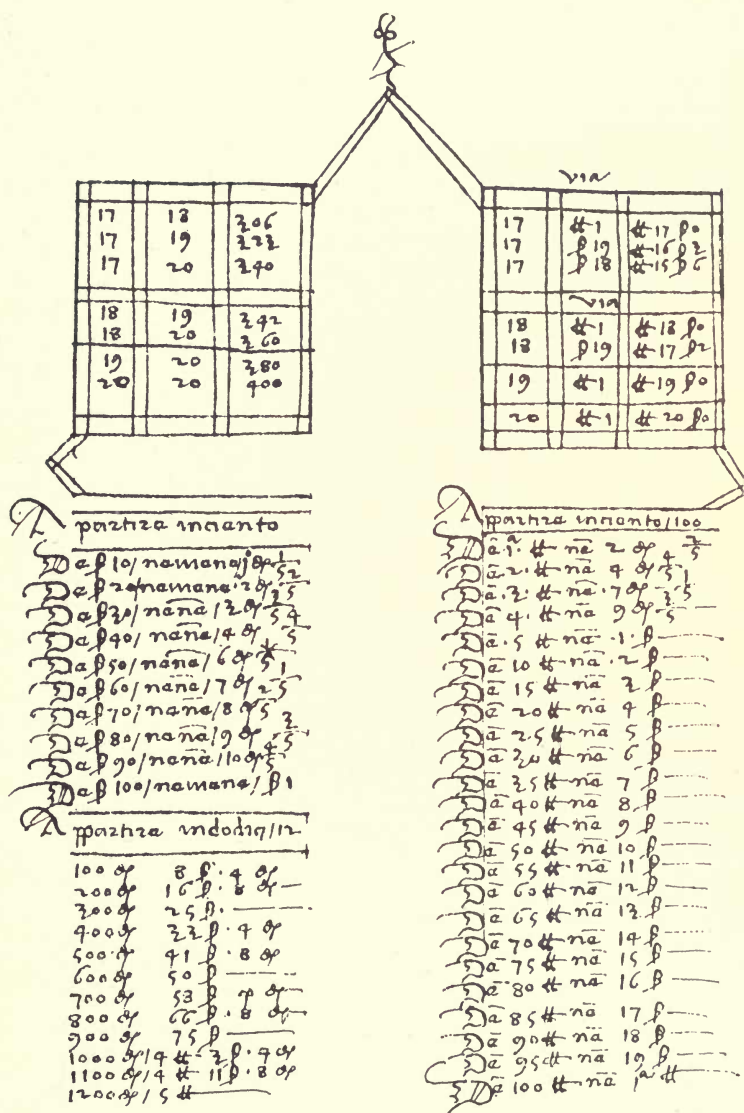 17 18 306
17 19 323
17 20 340
18 19 342
18 20 360
19 20 380
20 20 400
via
17 # 1 # 17 ß 0
17 ß 19 # 16 ß 3
17 ß 18 # 15 ß 6
via
18 # 1 # 18 ß 0
18 ß 19 # 17 ß 2
19 # 1 # 19 ß 0
20 # 1 # 20 ß 0
A partire incianto
De ß 10/ neuiene/ j ₰ 1/5
De ß 20/ neuiene · 2 ₰ 2/5
De ß 30/ nēnē / 3 ₰ 3/5
De ß 40/ nēnē / 4 ₰ 4/5
De ß 50/ nēnē / 6 ₰
De ß 60/ nēnē / 7 ₰ 1/5
De ß 70/ nēnē / 8 ₰ 2/5
De ß 80/ nēnē / 9 ₰ 3/5
De ß 90/ nēnē / 10 ₰ 4/5
De ß 100/ neuiene/ ß 1
A partire indodici/12
100 ₰ 8 ß · 4 ₰
200 ₰ 16 ß · 8 ₰
300 ₰ 25 ß ·
400 ₰ 33 ß · 4 ₰
500 ₰ 41 ß · 8 ₰
600 ₰ 50 ß
700 ₰ 58 ß 4 ₰
800 ₰ 66 ß · 8 ₰
900 ₰ 75 ß
1000 ₰/4 # 3 ß · 4 ₰
1100 ₰/4 # 11 ß · 8 ₰
1200 ₰/5 #
A partire incianto/100
Dē · 1 · # nē 2 ₰ 2/5
Dē · 2 · # nē 4 ₰ 4/5
Dē · 3 · # nē · 7 ₰ 1/5
Dē · 4 · # nē 9 ₰ 3/5
Dē · 5 # nē · 1 · ß
Dē 10 # nē · 2 ß
Dē 15 # nē 3 ß
Dē 20 # nē 4 ß
Dē 25 # nē 5 ß
Dē 30 # nē 6 ß
Dē 35 # nē 7 ß
Dē 40 # nē 8 ß
Dē 45 # nē 9 ß
Dē 50 # nē 10 ß
Dē 55 # nē 11 ß
Dē 60 # nē 12 ß
Dē 65 # nē 13 ß
Dē 70 # nē 14 ß
Dē 75 # nē 15 ß
Dē 80 # nē 16 ß
Dē 85 # nē 17 ß
Dē 90 # nē 18 ß
Dē 95 # nē 19 ß
Dē 100 # nē 1ª #